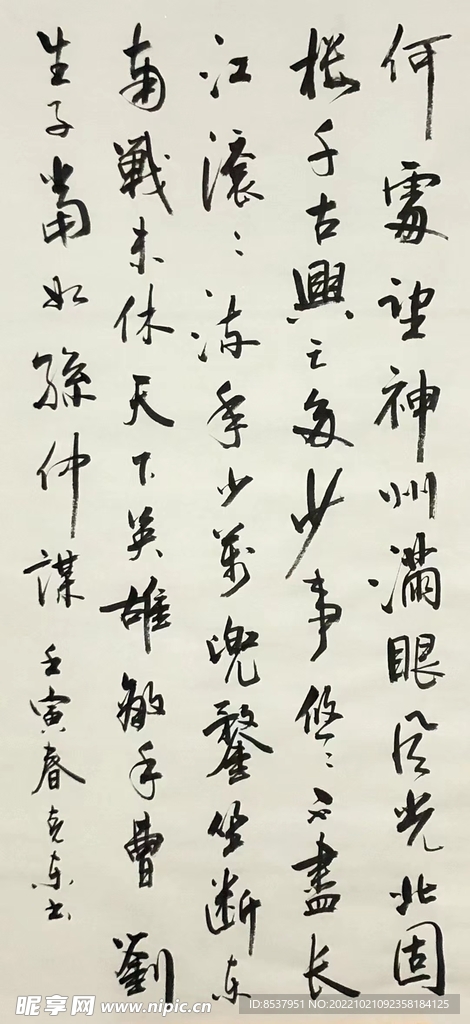 何處望神州滿眼风光北固
楼千古興亡多少事悠〻不盡長
江滚〻流年少萬兜鍪坐断东
南戰未休天下英雄敵手曹劉
生子當如孫仲謀 壬寅春克东书
昵享网 www.nipic.cn
ID:8537951 NO:20221021092358184125